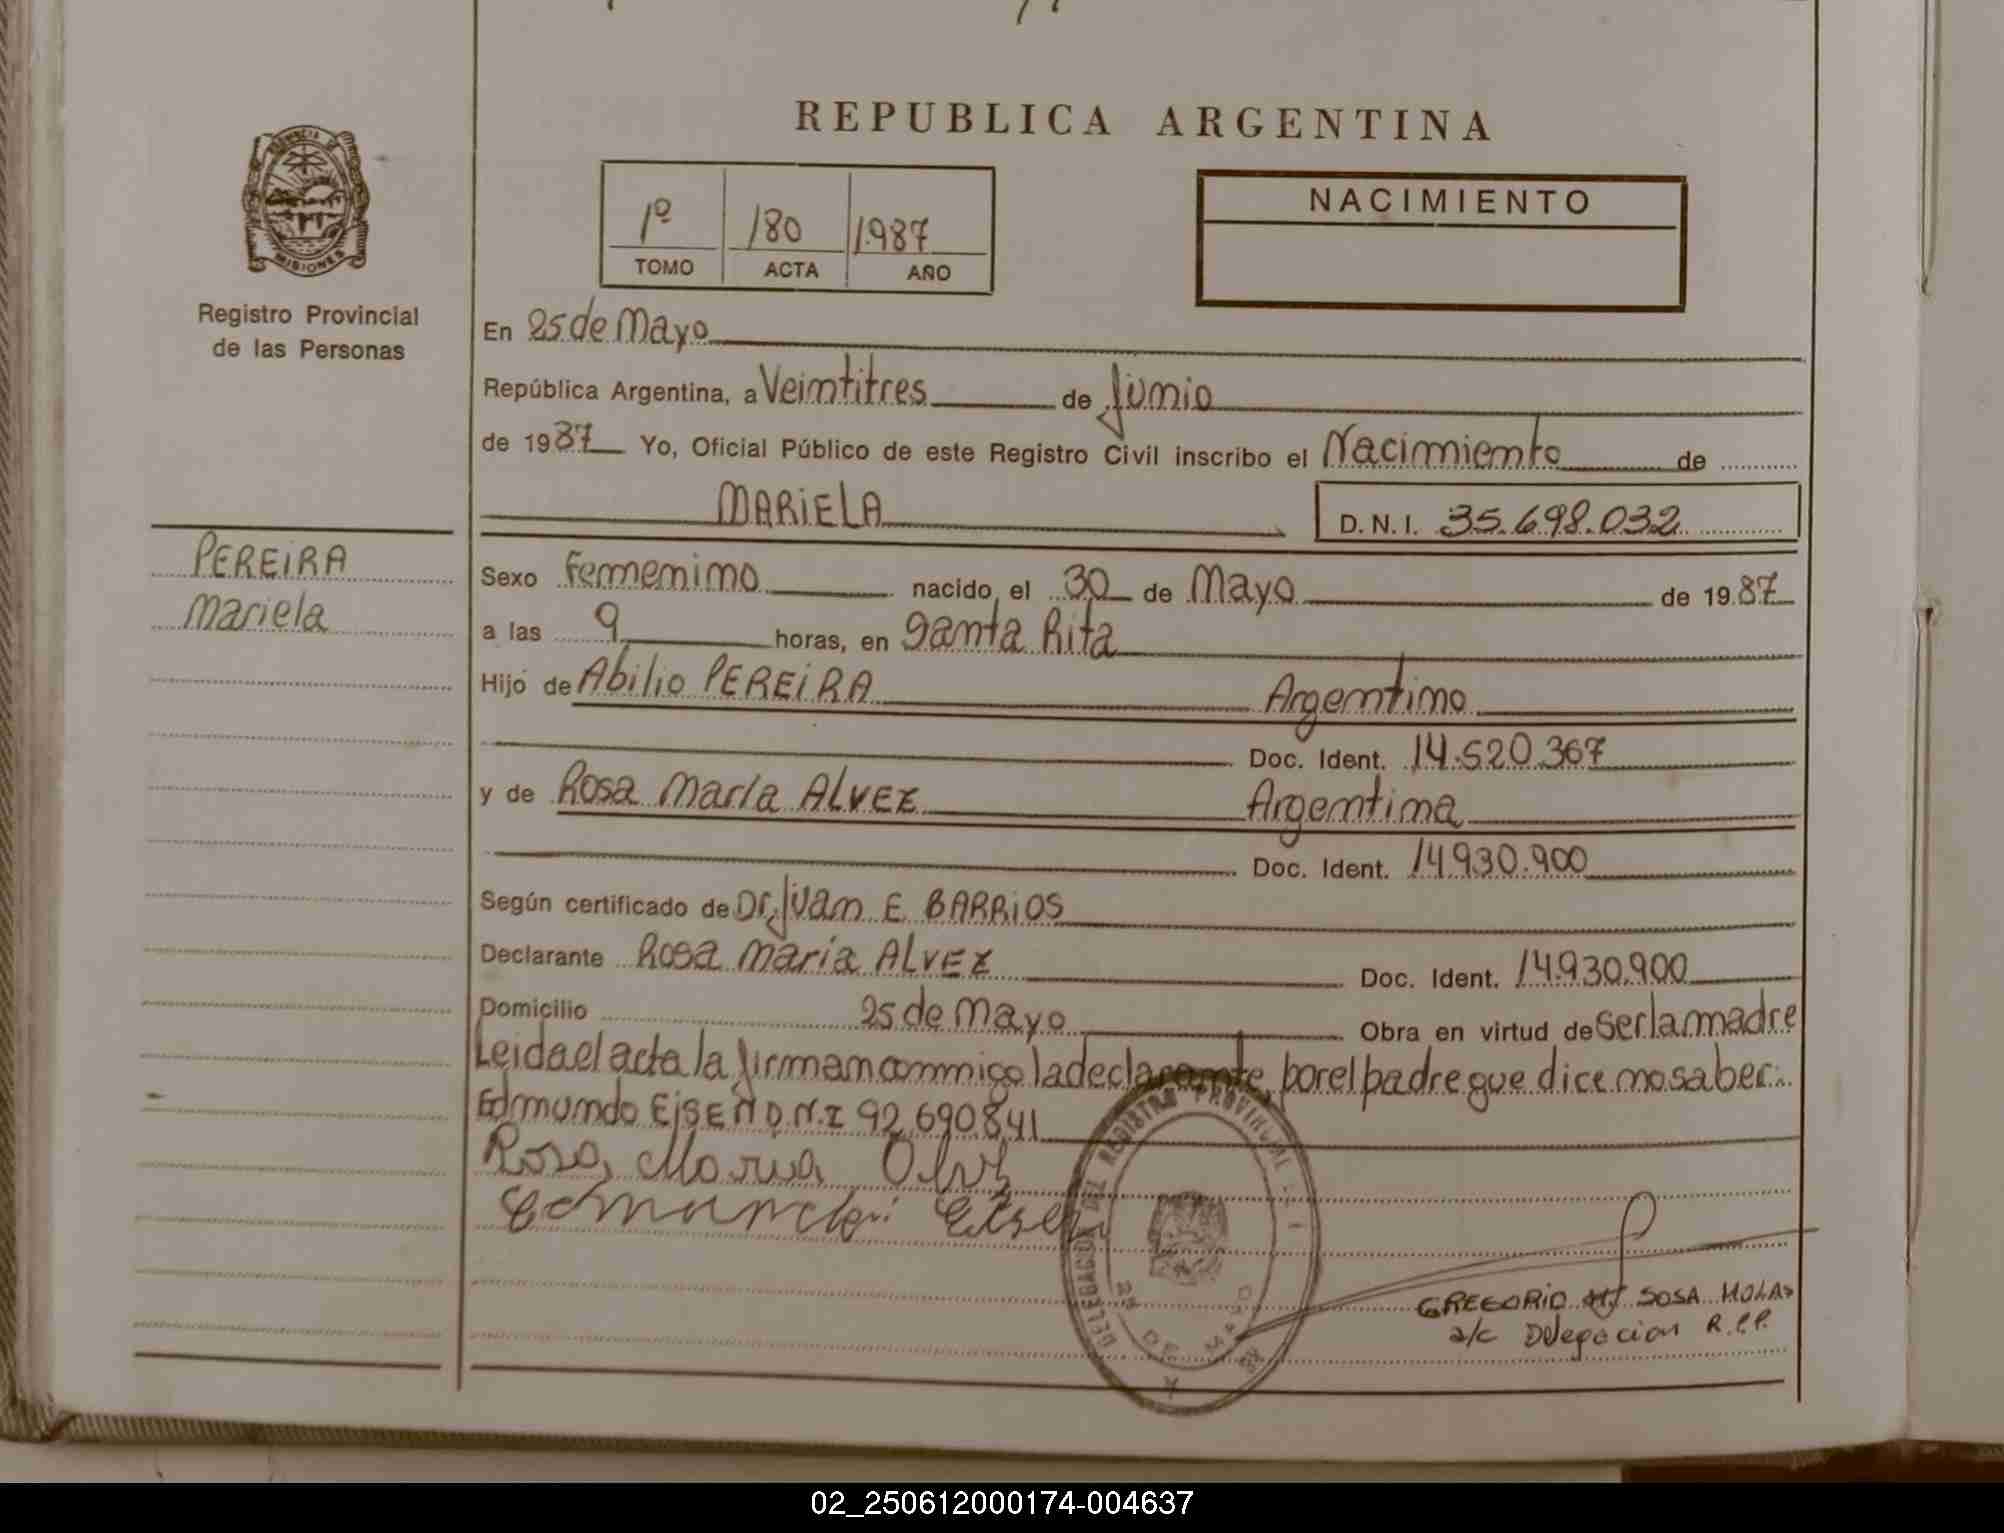 REPUBLICA ARGENTINA
PROVINCIA DE MISIONES
Registro Provincial
de las Personas
1º 180 1.987
TOMO ACTA AÑO
NACIMIENTO
En 25 de Mayo
República Argentina, a Veintitres de Junio
de 1987 Yo, Oficial Público de este Registro Civil inscribo el Nacimiento de
MARIELA D.N.I. 35.698.032
PEREIRA
Mariela
Sexo Femenino nacido el 30 de Mayo de 1987
a las 9 horas, en Santa Rita
Hijo de Abilio PEREIRA Argentino
Doc. Ident. 14.520.367
y de Rosa María ALVEZ Argentina
Doc. Ident. 14.930.900
Según certificado de Dr. Juan E BARRIOS
Declarante Rosa María ALVEZ Doc. Ident. 14.930.900
Domicilio 25 de Mayo Obra en virtud de ser la madre
Leida el acta la firman conmigo la declarante, por el padre que dice no saber.
Edmundo EiSEN D.N.I 92.690.841
Rosa Maria
DELEGACION DEL REGISTRO PROVINCIAL
25 DE MAYO
GREGORIO SOSA MOLAS
a/c Delegacion R.P.P.
02_250612000174-004637